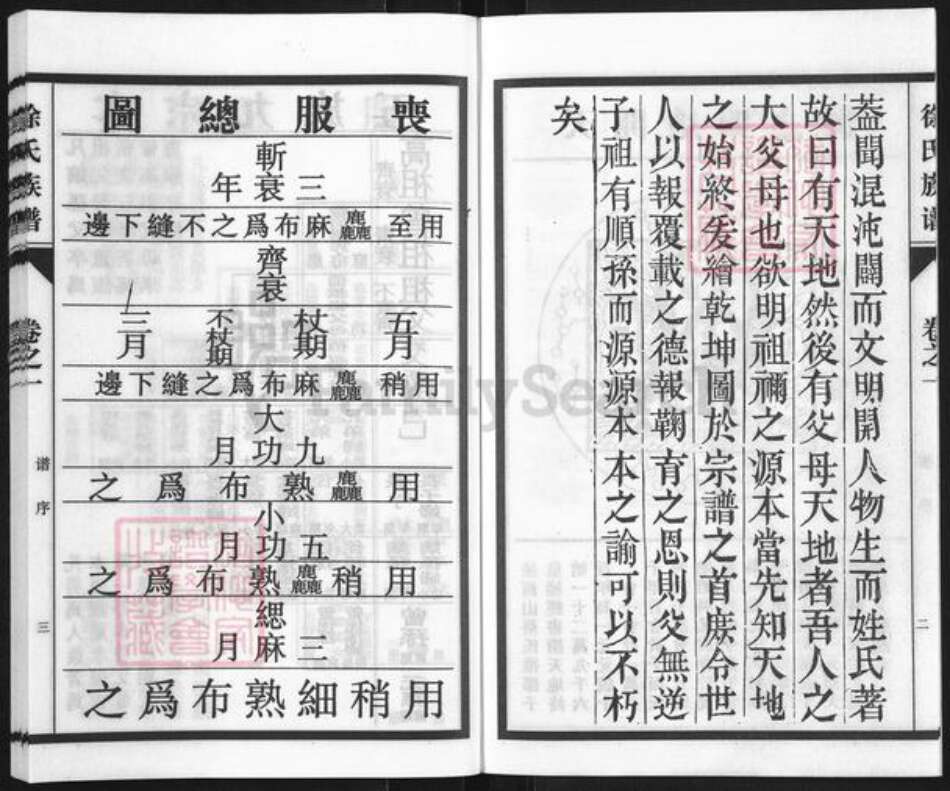 徐氏族譜
卷之一
二
葢聞混沌闢而文明開人物生而姓氏著
故曰有天地然後有父母天地者吾人之
大父母也欲明祖禰之源本當先知天地
之始終爰繪乾坤圖於宗譜之首庻令世
人以報覆載之德報鞠育之恩則父無逆
子祖有順孫而源源本本之諭可以不朽
矣
喪服總圖
斬衰三年
用至麤麻布爲之不縫下邊
齊衰
五月
杖期
不杖期
三月
用稍麤麻布爲之縫下邊
大功九月
用麤熟布爲之
小功五月
用稍麤熟布爲之
緦麻三月
用稍細熟布爲之
徐氏族譜
卷之一
谱序
三
FamilySearch